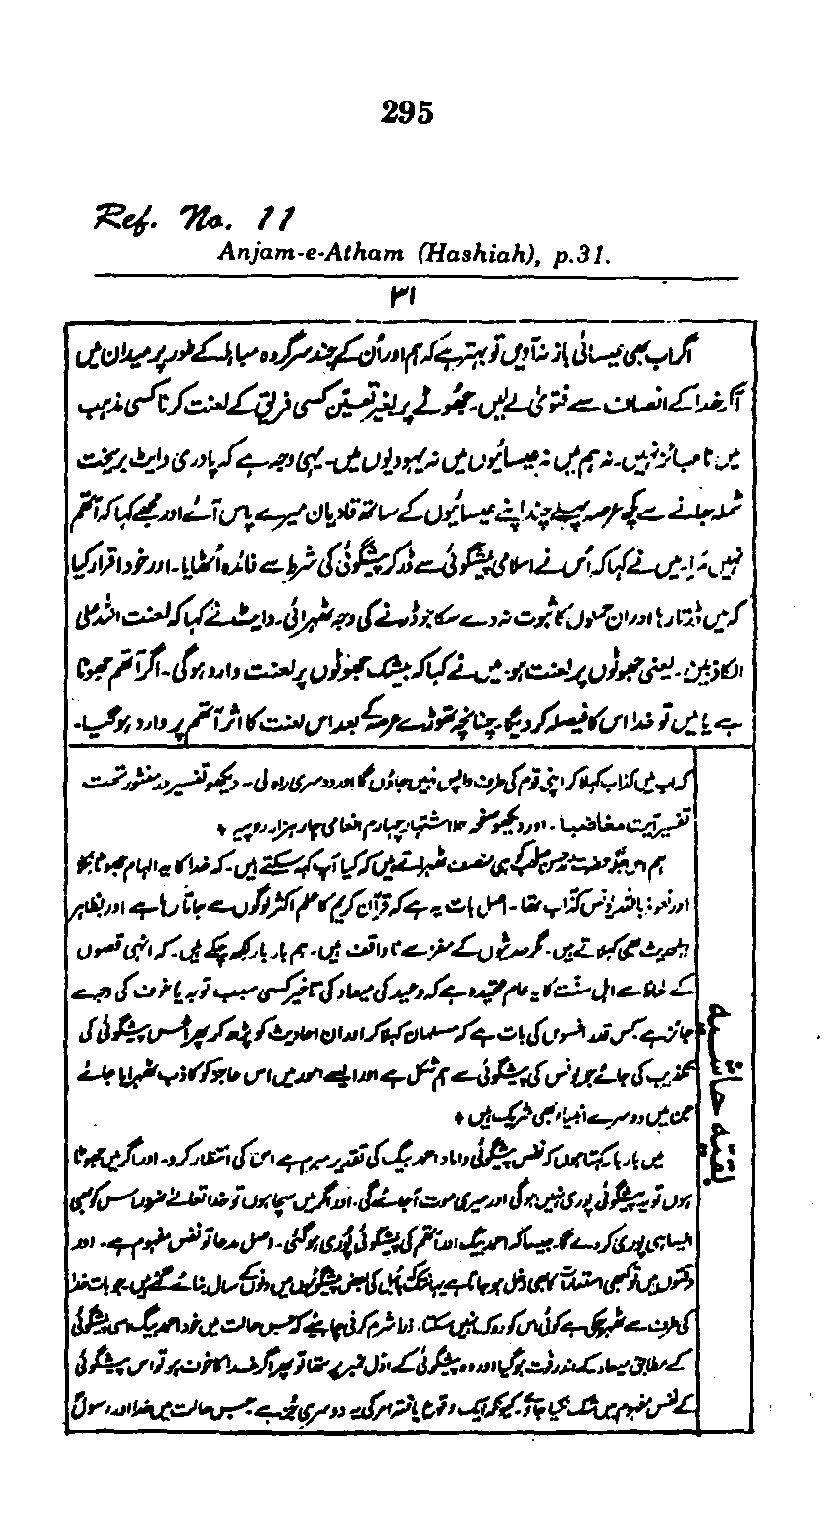 295
Ref. No. 11
Anjam-e-Atham (Hashiah), p.31.
۳۱
اگر اب بھی عیسائی باز نہ آویں تو بہتر ہے کہ ہم اور اُن کے چند سرگردہ مباہلہ کے طور پر میدان میں
آکر خدا کے انصاف سے فتویٰ لے لیں۔ جھوٹے پر بغیر تعین کسی فریق کے لعنت کرنا کسی مذہب
میں ناجائز نہیں۔ نہ ہم میں نہ عیسائیوں میں نہ یہودیوں میں۔ یہی وجہ ہے کہ پادری وایٹ بریخت
شملہ جانے سے کچھ عرصہ پہلے چند اپنے عیسائیوں کے ساتھ قادیان میں میرے پاس آئے اور مجھے کہا کہ آتھم
نہیں مرا۔ میں نے کہا کہ اُس نے اسلامی پیشگوئی سے ڈر کر پیشگوئی کی شرط سے فائدہ اُٹھایا۔ اور خود اقرار کیا
کہ میں ڈرتا رہا اور ان حملوں کا ثبوت نہ دے سکا جو ڈرنے کی وجہ ٹھہرائی۔ وایٹ نے کہا کہ لعنت اللہ علی
الکاذبین۔ یعنی جھوٹوں پر لعنت ہو۔ میں نے کہا کہ بیشک جھوٹوں پر لعنت وارد ہوگی۔ اگر آتھم جھوٹا
ہے یا میں تو خدا اس کا فیصلہ کر دیگا۔ چنانچہ تھوڑے عرصہ کے بعد اس لعنت کا اثر آتھم پر وارد ہو گیا۔
کہ اب میں کذاب کہلا کر اپنی قوم کی طرف واپس نہیں جاؤں گا اور دوسری راہ لی۔ دیکھو تفسیر در منثور تحت
تفسیر آیت مغاضبا۔ اور دیکھو صفحہ اشتہار چہارم انعامی چار ہزار روپیہ
ہم اس جگہ حضرت ہی منصف ٹھہراتے ہیں کہ کیا آپ کہہ سکتے ہیں۔ کہ خدا کا یہ الہام جھوٹا
اور نعوذ باللہ یونس کذاب تھا۔ اصل بات یہ ہے کہ قرآن کریم کا علم اکثر لوگوں سے جاتا رہا ہے اور بظاہر
اہلحدیث بھی کہلاتے ہیں۔ مگر حدیثوں کے مغز سے ناواقف ہیں۔ ہم بار بار کہہ چکے ہیں۔ کہ انہی قصوں
کے لحاظ سے اہل سنت کا یہ عام عقیدہ ہے کہ وعید کی میعاد کی تاخیر کسی سبب توبہ یا خوف کی وجہ سے
جائز ہے۔ کس قدر افسوس کی بات ہے کہ مسلمان کہلا کر اور ان احادیث کو پڑھ کر پھر اس پیشگوئی کی
تکذیب کی جائے جو یونس کی پیشگوئی سے ہم شکل ہے اور ایسے امور میں اس عاجز کو کاذب ٹھہرایا جائے
جن میں دوسرے انبیاء بھی شریک ہیں
میں بار بار کہتا ہوں کہ نفس پیشگوئی داماد احمد بیگ کی تقدیر مبرم ہے اس کی انتظار کرو۔ اور اگر میں جھوٹا
ہوں تو یہ پیشگوئی پوری نہیں ہوگی اور میری موت آجائے گی۔ اور اگر میں سچا ہوں تو خدا تعالےٰ ضرور اس کو بھی
ایسا ہی پوری کر دے گا۔ جیسا کہ احمد بیگ اور آتھم کی پیشگوئی پوری ہو گئی۔ اصل مدعا تو نفس مفہوم ہے۔ اور
وقتوں میں تو کبھی استعارات کا بھی دخل ہو جاتا ہے یہانتک کہ بائبل کی بعض پیشگوئیوں میں دنوں کے سال بنائے گئے ہیں۔ جو بات خدا
کی طرف سے ٹھہر چکی ہے کوئی اس کو روک نہیں سکتا۔ ذرا شرم کرنی چاہئے کہ جس حالت میں خود احمد بیگ اسی پیشگوئی
کے مطابق میعاد کے اندر فوت ہو گیا اور وہ پیشگوئی کے اول نمبر پر تھا تو پھر اگر خدا کا خوف ہو تو اس پیشگوئی
کے نفس مفہوم میں شک نہ کیا جاوے۔ کیونکہ ایک وقوع یافتہ امر کی یہ دوسری جز ہے۔ جس حالت میں خدا اور رسول
بقیہ حاشیہ